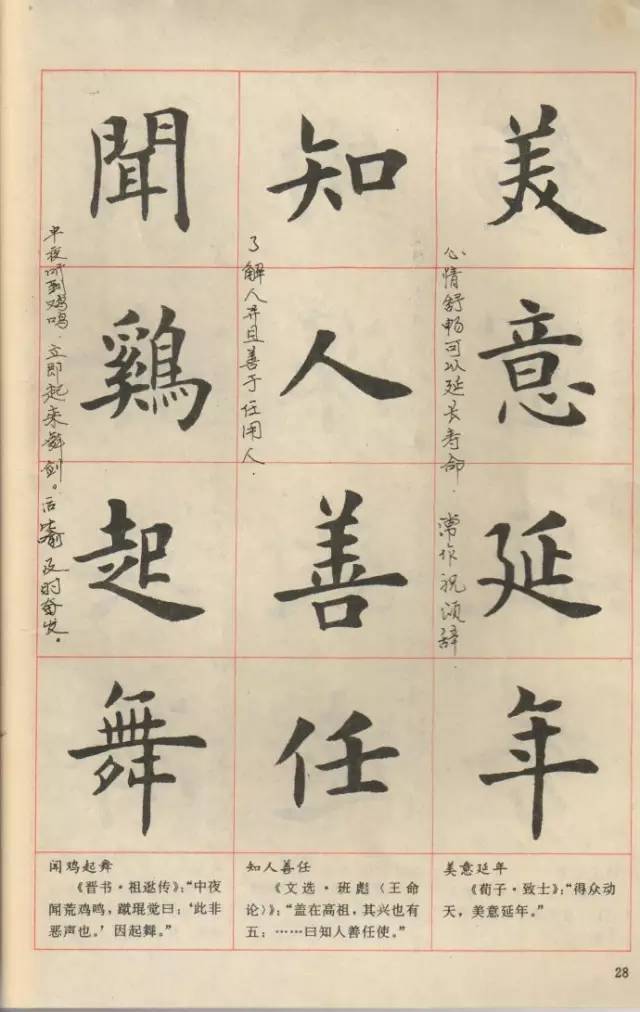 美意延年
心情舒畅可以延长寿命.常作祝颂辞.
知人善任
了解人并且善于任用人.
聞鷄起舞
半夜听到鸡鸣.立即起来舞剑。后喻及时奋发。
闻鸡起舞
《晋书·祖逖传》：“中夜
闻荒鸡鸣，蹴琨觉曰：‘此非
恶声也。’因起舞。”
知人善任
《文选·班彪（王命
论）》：“盖在高祖，其兴也有
五：……曰知人善任使。”
美意延年
《荀子·致士》：“得众动
天，美意延年。”
28